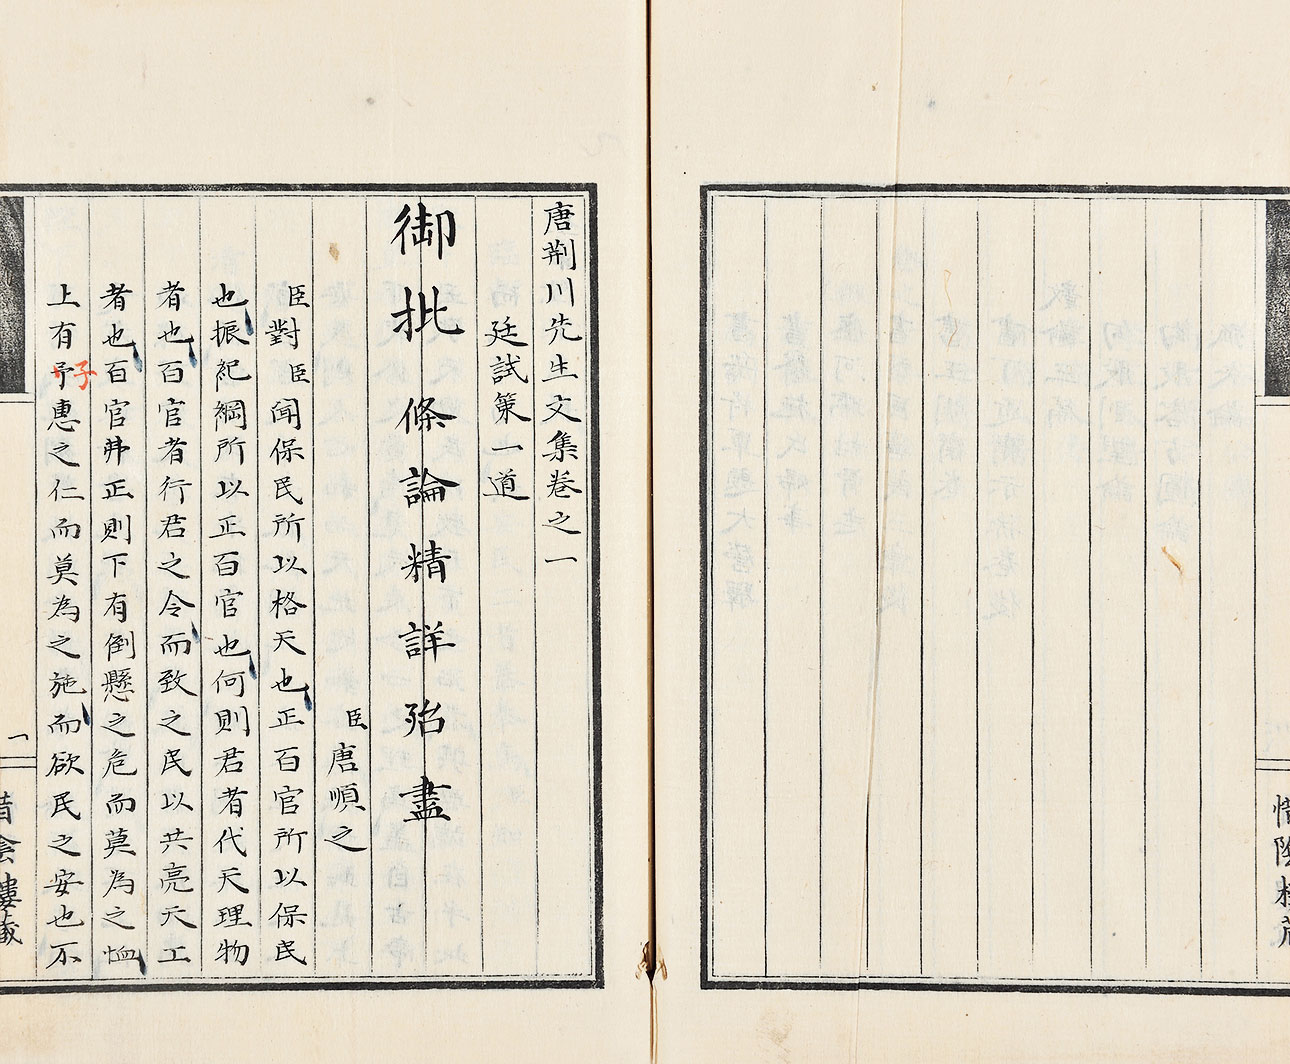 惜陰樓藏
唐荆川先生文集卷之一
廷試策一道
御批條論精詳殆盡
臣唐順之
臣對臣聞保民所以格天也正百官所以保民
也振紀綱所以正百官也何則君者代天理物
者也百官者行君之令而致之民以共亮天工
者也百官弗正則下有倒懸之危而莫為之恤
上有予惠之仁而莫為之施而欲民之安也不
子
惜陰樓藏